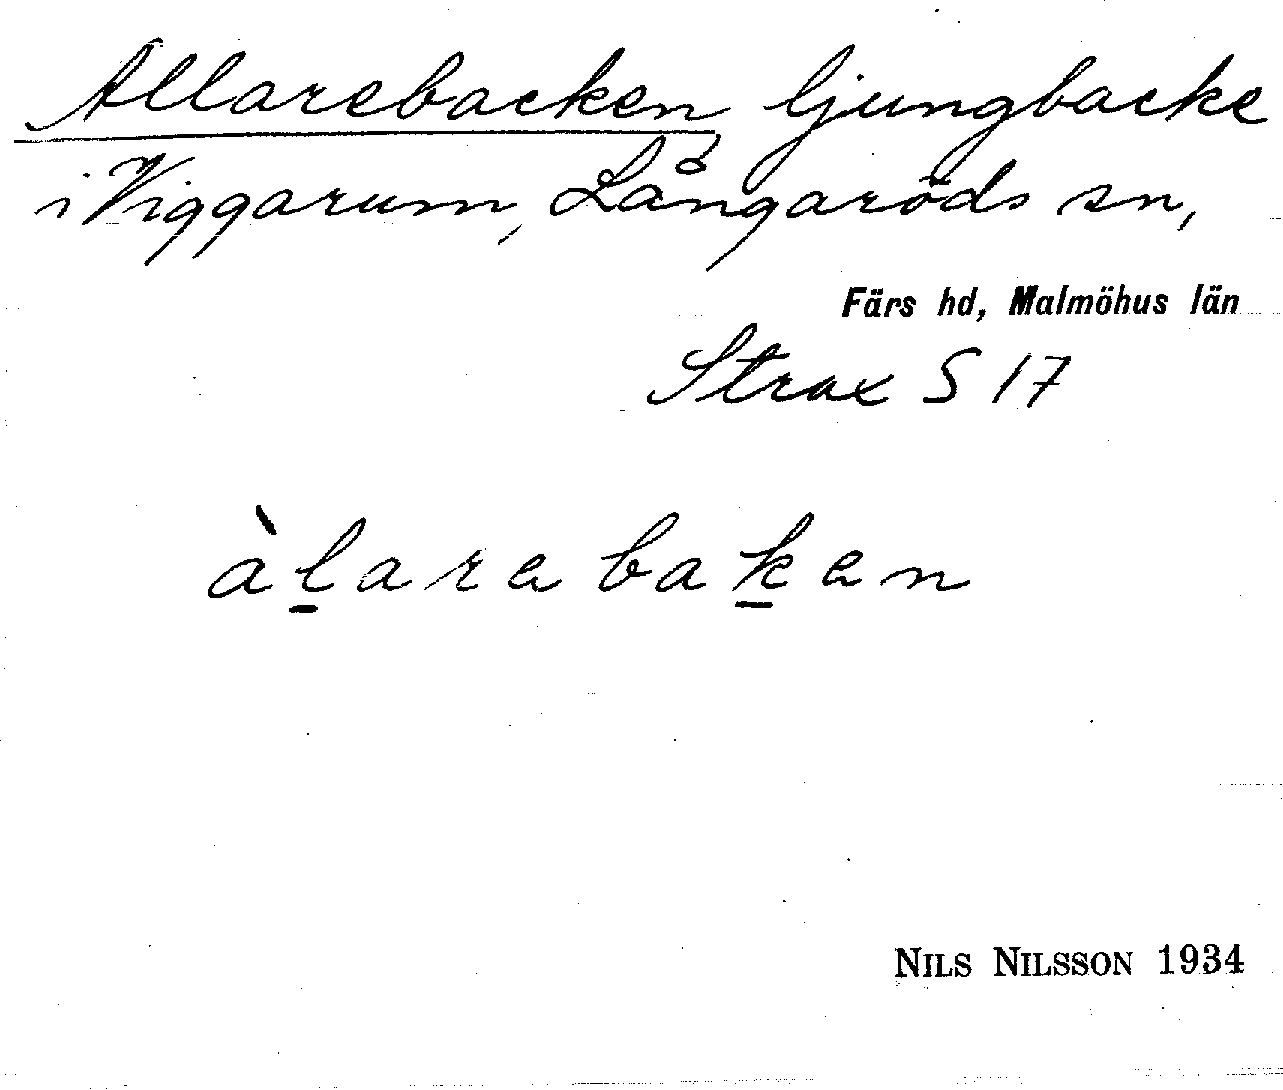 Allarebacken ljungbacke
i Viggarum, Långaröds sn,
Färs hd, Malmöhus län
Strax S 17
àl̠arebak̠en
NILS NILSSON 1934